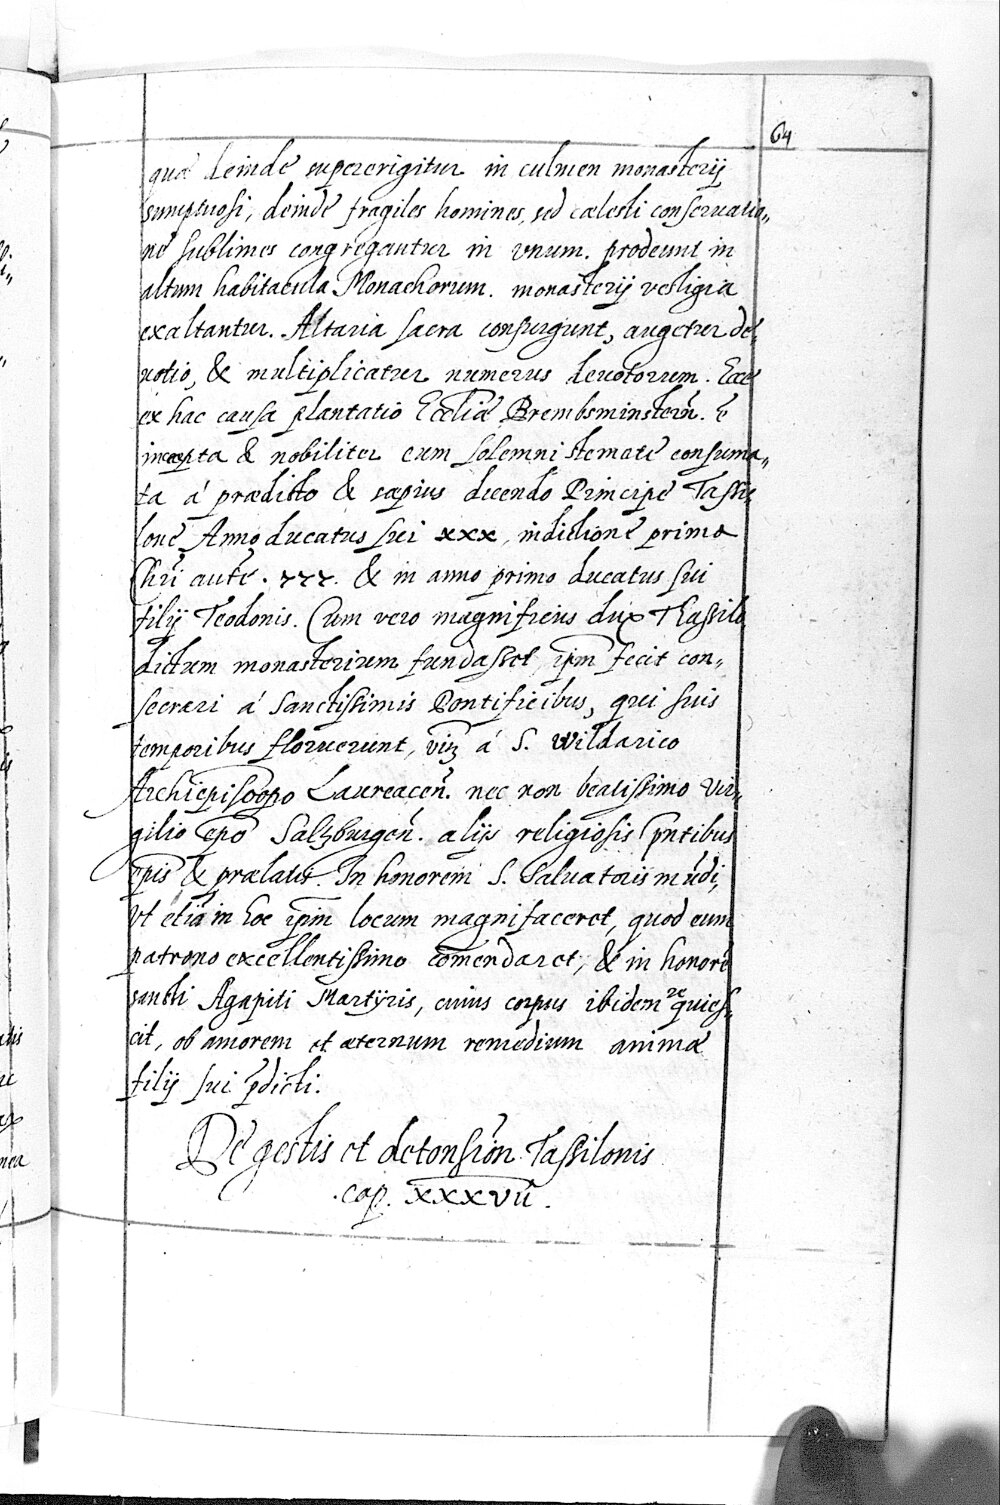 64
quæ deinde supererigitur in culmen monasterij
sumptuosi, deinde fragiles homines, sed cælesti conseruatio„
ne sublimes congregantur in vnum. prodeunt in
altum habitacula Monachorum. monasterij vestigia
exaltantur. Altaria sacra consurgunt, augetur de„
uotio, & multiplicatur numerus deuotorum. Ecce
ex hac causa plantatio Eccłiæ Brembsminsterñ. ē
incæpta & nobiliter cum solemni stemate consuma„
ta á prædicto & sæpius dicendo Principe Tassi„
lone Anno ducatus sui xxx, indictione prima
Chr̃i aute. 777. & in anno primo ducatus sui
filij Teodonis. Cum vero magnificus dux Thassilo
dictum monasterium fundasset, ip̃m fecit con„
secrari á Sanctissimis Pontificibus, qui suis
temporibus floruerunt, viz á S. Wildarico
Archiepiscopo Laureaceñ. nec non beatissimo Vir„
gilio ep̃o Salzburgeñ. alijs religiosis p̃ntibus
ep̃is & prælatis. In honorem S. Saluatoris mũdi,
vt etiã in hoc ip̃m locum magnifaceret, quod eum
patrono excellentissimo com̃endaret, & in honore
sancti Agapiti Martÿris, cuius corpus ibidem requies„
cit, ob amorem et æternum remedium animæ
filij sui p̃dicti.
De gestis et detonsioñ Tassilonis
. cap. xxxvii .